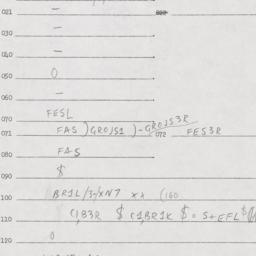 021 —
030 —
040 —
050 0
060 —
FESL
070
071 FAS )GROJS1 )-GROJS3R
072 FES3R
080 FAS
090 $
100 BR1L/3-/XN7 xx (160
110 C1,83R $ C1,BR1K $ = S+EFL$
120 0